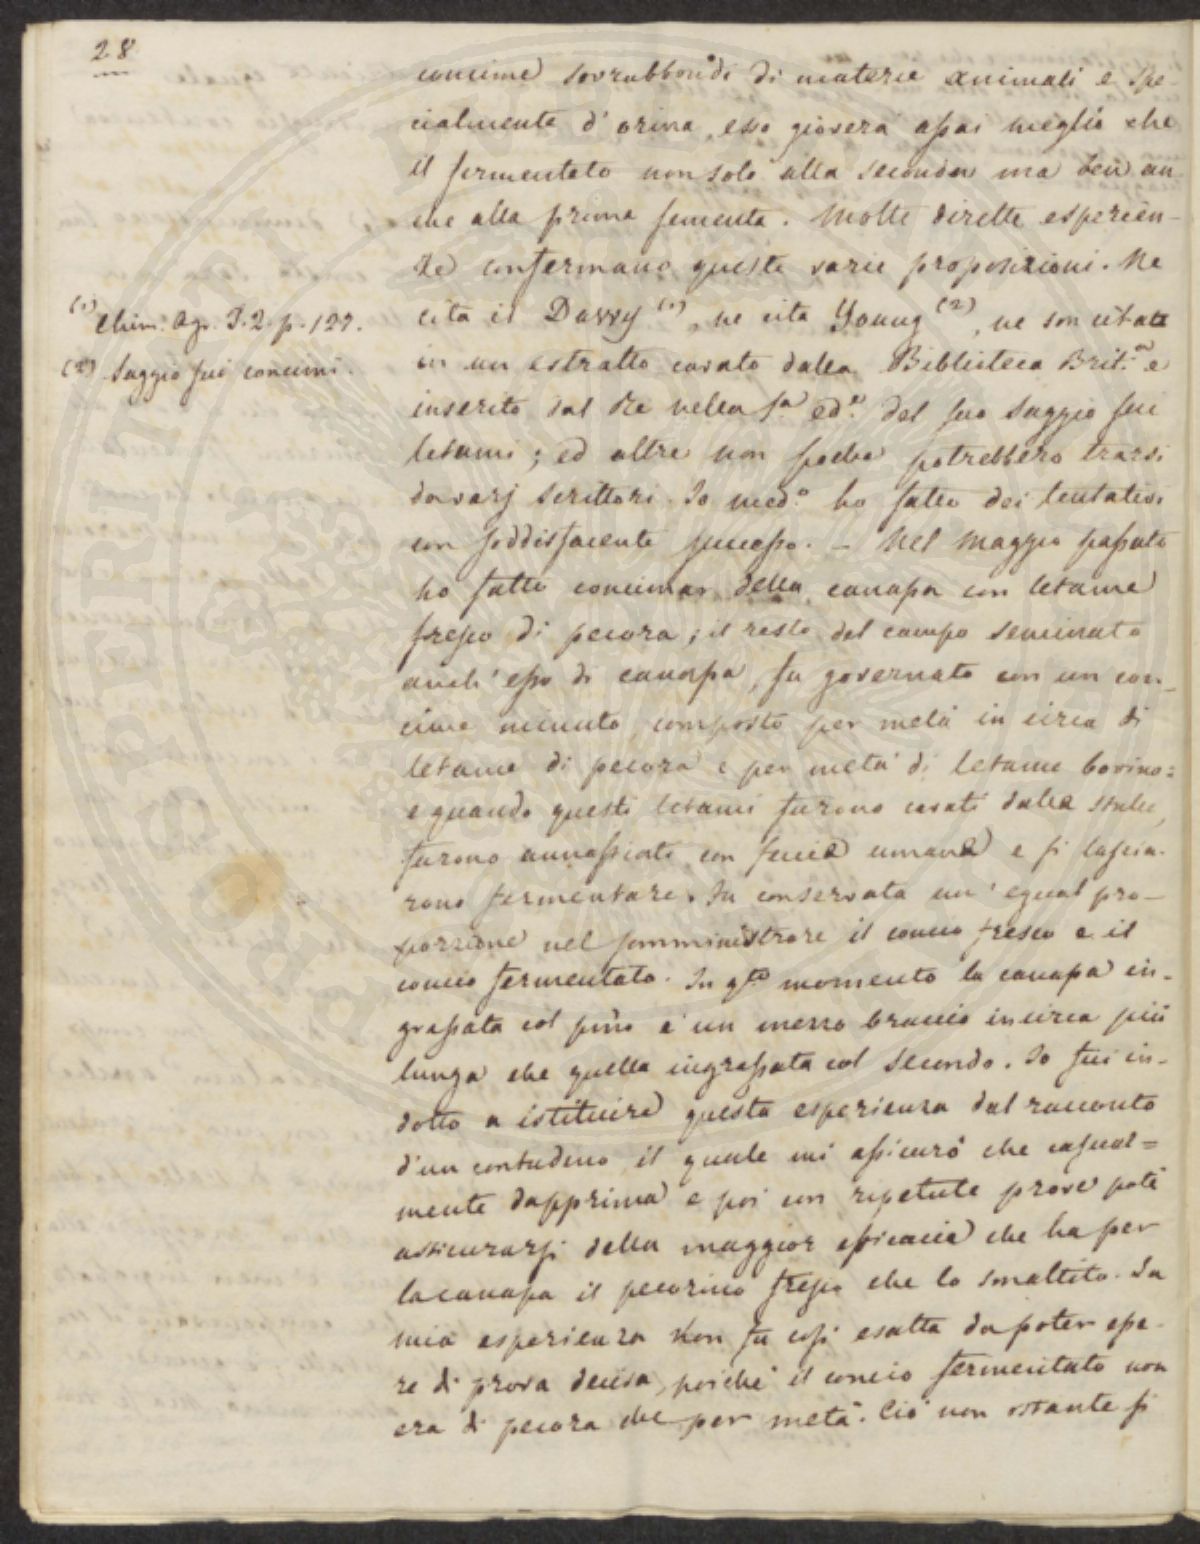 28
concime sovrabbondi di materie animali e spe-
cialmente d'orina, esso gioverà assai meglio che
il fermentato non solo alla seconda ma ben an
che alla prima sementa. Molte dirette esperien-
ze confermano queste varie proposizioni. Ne
cita il Davvy (1), ne cita Young (2), ne son citate
in un estratto cavato dalla Biblioteca Brit.ca e
inserito dal Re nella ed.e del suo Saggio sui
letami; ed altre non poche potrebbero trarsi
da varj scrittori. Io med.o ho fatto dei tentativi
con soddisfacente successo. – Nel Maggio passato
ho fatto concimar della canapa con letame
fresco di pecora; il resto del campo seminato
anch'esso di canapa, fu governato con un con-
cime minuto, composto per metà in circa di
letame di pecora e per metà di letame bovino:
e quando questi letami furono cavati dalle stalle,
furono annaffiati con feccia umana e si lascia-
rono fermentare. Fu conservata un'egual pro-
porzione nel somministrare il concio fresco e il
concio fermentato. In q.to momento la canapa in-
grassata col primo è un mezzo braccio incirca più
lunga che quella ingrassata col secondo. Io fui in-
dotto a istituire questa esperienza dal racconto
d'un contadino il quale mi assicurò che casual=
mente dapprima e poi con ripetute prove potè
assicurarsi della maggior efficacia che ha per
la canapa il pecorino fresco che lo smaltito. La
mia esperienza non fu così esatta da poter esse-
re di prova decisa, poiché il concio fermentato non
era di pecora che per metà. Ciò non ostante si
(1) Chim. Agr. T. 2. p. 127.
(2) Saggio sui concimi.